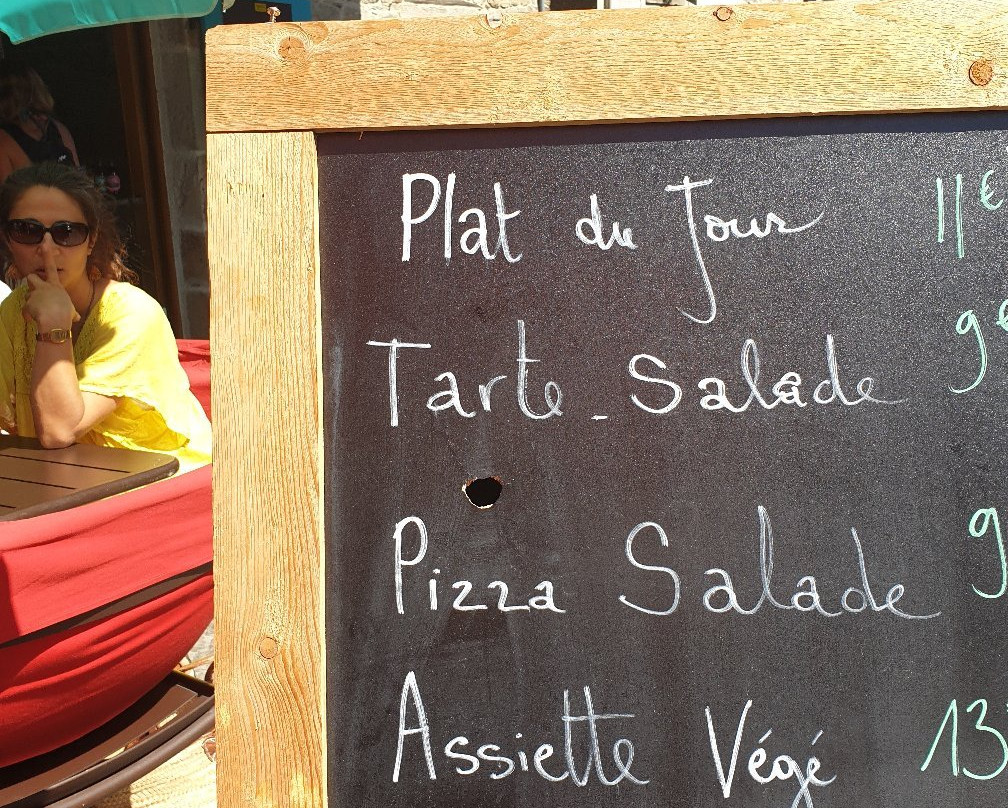 Plat du Jour 11€
Tarte - Salade 9€
Pizza Salade 9
Assiette Végé 13